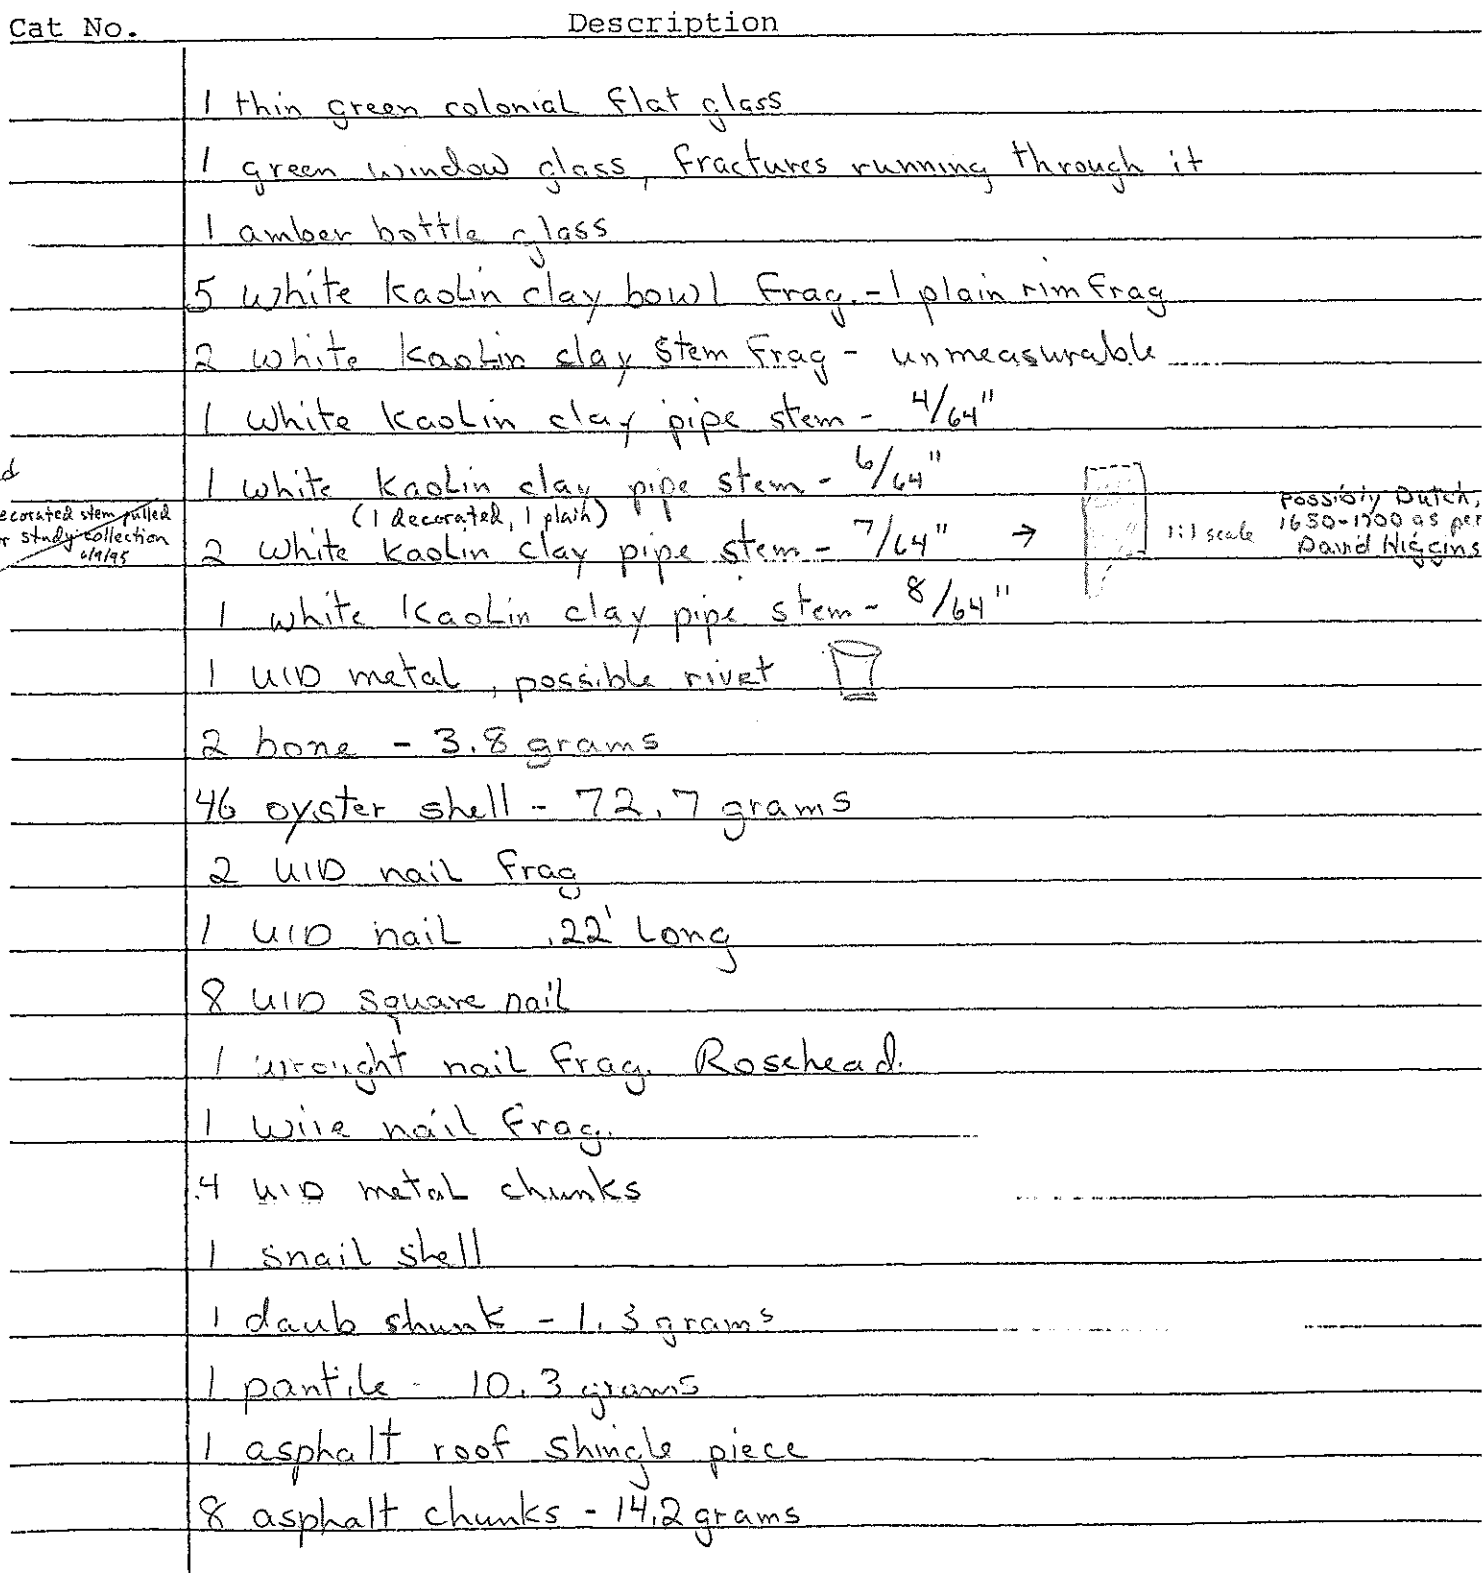 Cat No. Description
1 thin green colonial flat glass
1 green window glass, fractures running through it
1 amber bottle glass
5 white Kaolin clay bowl frag. - 1 plain rim frag
2 white Kaolin clay stem frag - unmeasurable
1 white Kaolin clay pipe stem - 4/64"
1 white Kaolin clay pipe stem - 6/64"
(1 decorated, 1 plain)
2 white Kaolin clay pipe stem - 7/64" →
1:1 scale
Possibly Dutch,
1630-1700 as per
David Higgins
ecorated stem pulled
r study collection
6/9/95
1 white Kaolin clay pipe stem - 8/64"
1 UID metal, possible rivet
2 bone - 3.8 grams
46 oyster shell - 72.7 grams
2 UID nail frag
1 UID nail .22' Long
8 UID square nail
1 wrought nail frag. Rosehead.
1 wire nail frag.
4 UID metal chunks
1 snail shell
1 daub shunk - 1.3 grams
1 pantile - 10.3 grams
1 asphalt roof shingle piece
8 asphalt chunks - 14.2 grams